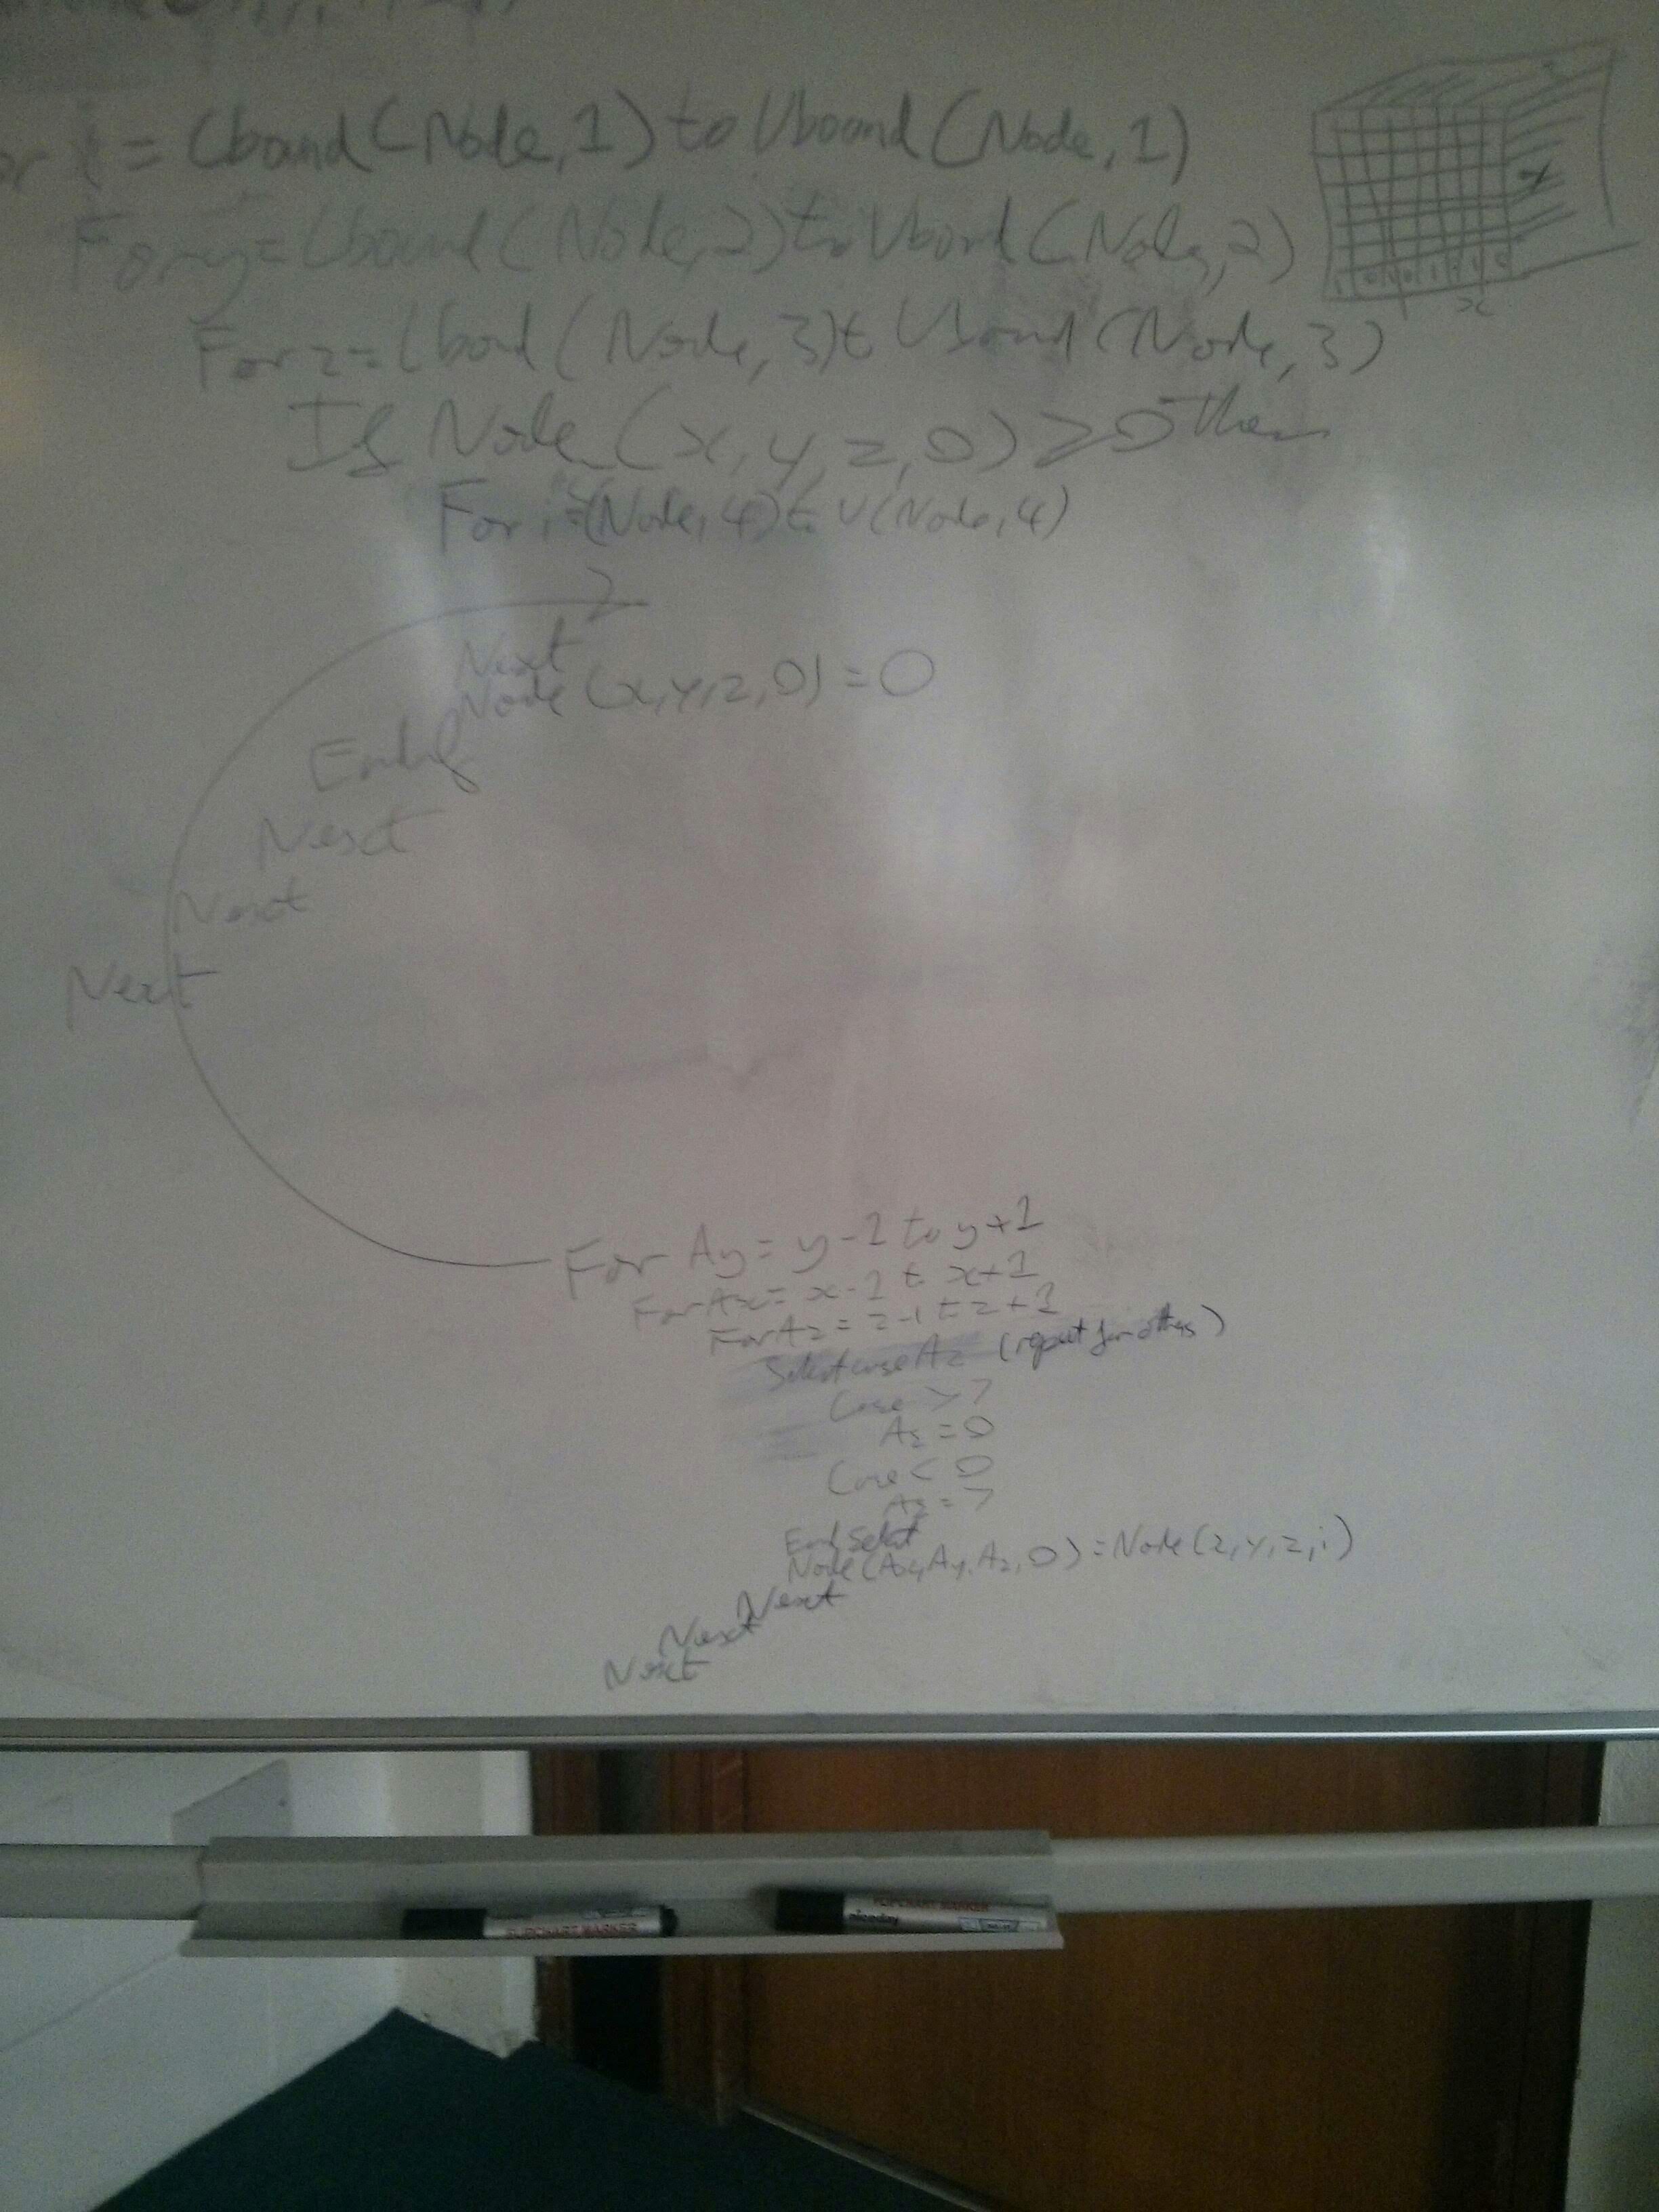 For i = Lbound(Node,1) to Ubound(Node,1)
For y = Lbound(Node,2) to Ubound(Node,2)
For z = Lbond(Node,3) t Ubound(Node,3)
If Node(x,y,z,0) > 0 Then
For i = (Node,4) t U(Node,4)
Next
Node(x,y,z,0) = 0
End if
Next
Next
Next
x
For Ay = y-1 to y+1
For Ax = x-1 t x+1
For Az = z-1 t z+1
Select case Az (repeat for others)
Case > 7
Az = 0
Case < 0
Az = 7
End Select
Node(Ax,Ay,Az,0) = Node(z,y,z,i)
Next
Next
Next
FLIPCHART MARKER
FLIPCHART MARKER
niceday